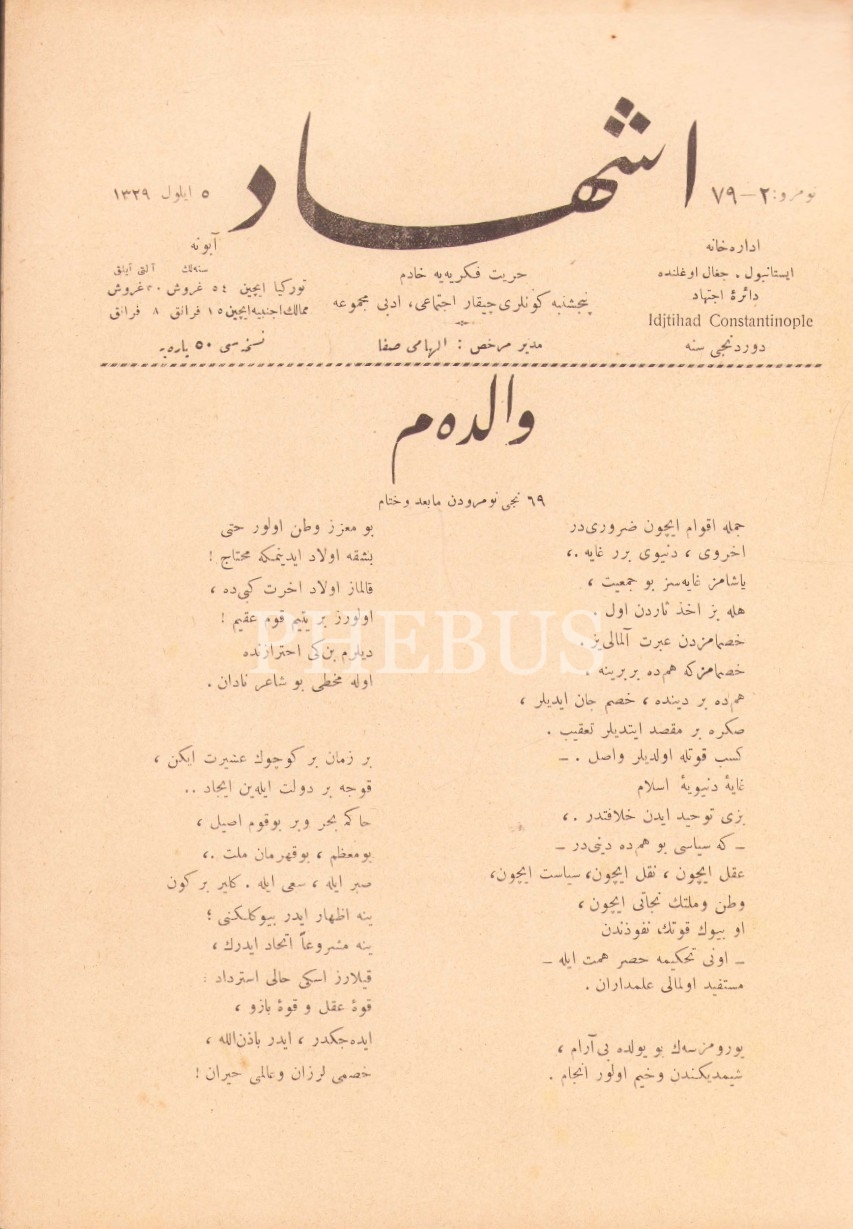 اشهاد
نومرو: ٢ — ٧٩
٥ ايلول ١٣٢٩
اداره خانه
ايستانبول . جغال اوغلنده
دائرهٔ اجتهاد
Idjtihad Constantinople
دوردنجى سنه
حريت فكريه‌يه خادم
پنجشنبه كونلرى چيقار اجتماعى، ادبى مجموعه
مدير مرخص : الهامى صفا
آبونه
سنه‌لك آلتى آيلق
توركيا ايچين ٥٤ غروش ٣٠ غروش
ممالك اجنبيه ايچين ١٥ فرانق ٨ فرانق
نسخه‌سى ٥٠ پاره‌يه
والده‌م
٦٩ نجى نومرودن مابعد وختام
جمله اقوام ايچون ضرورى‌در
اخروى ، دنيوى برر غايه .،
ياشامز غايه‌سز بو جمعيت ،
هله بز اخذ ثاردن اول .
خصمامزدن عبرت آلمالى‌يز .
خصمامزكه هم‌ده بربرينه .
هم‌ده بر دينده ، خصم جان ايديلر ،
صكره بر مقصد ايتديلر تعقيب .
كسب قوتله اولديلر واصل . ـ
غايهٔ دنيويهٔ اسلام
بزى توحيد ايدن خلافتدر .،
ـ كه سياسى بو هم‌ده دينى‌در ـ
عقل ايچون ، نقل ايچون، سياست ايچون،
وطن وملتك نجاتى ايچون ،
او بيوك قوتك، نفوذندن
ـ اونى تحكيمه حصر همت ايله ـ
مستفيد اولمالى علمداران .
يورومزسه‌ك بو يولده بى‌آرام ،
شيمديكندن وخيم اولور انجام .
بو معزز وطن اولور حتى
بشقه اولاد ايدينمكه محتاج !
قالماز اولاد اخرت كبى‌ده ،
اولورز بر يتيم قوم عقيم !
ديلرم بن‌كى احترازنده
اوله مخطى بو شاعر نادان .
بر زمان بر كوچوك عشيرت ايكن ،
قوجه بر دولت ايله‌ين ايجاد ..
حاكم بحر وبر بوقوم اصيل ،
بومعظم ، بوقهرمان ملت .،
صبر ايله ، سعى ايله . كلير بر كون
ينه اظهار ايدر بيوكلكنى ؛
ينه مشروعاً اتحاد ايدرك ،
قيلارز اسكى حالى استرداد :
قوهٔ عقل و قوهٔ بازو ،
ايده‌جكدر ، ايدر باذن‌الله ،
خصمى لرزان وعالمى حيران !
PHEBUS